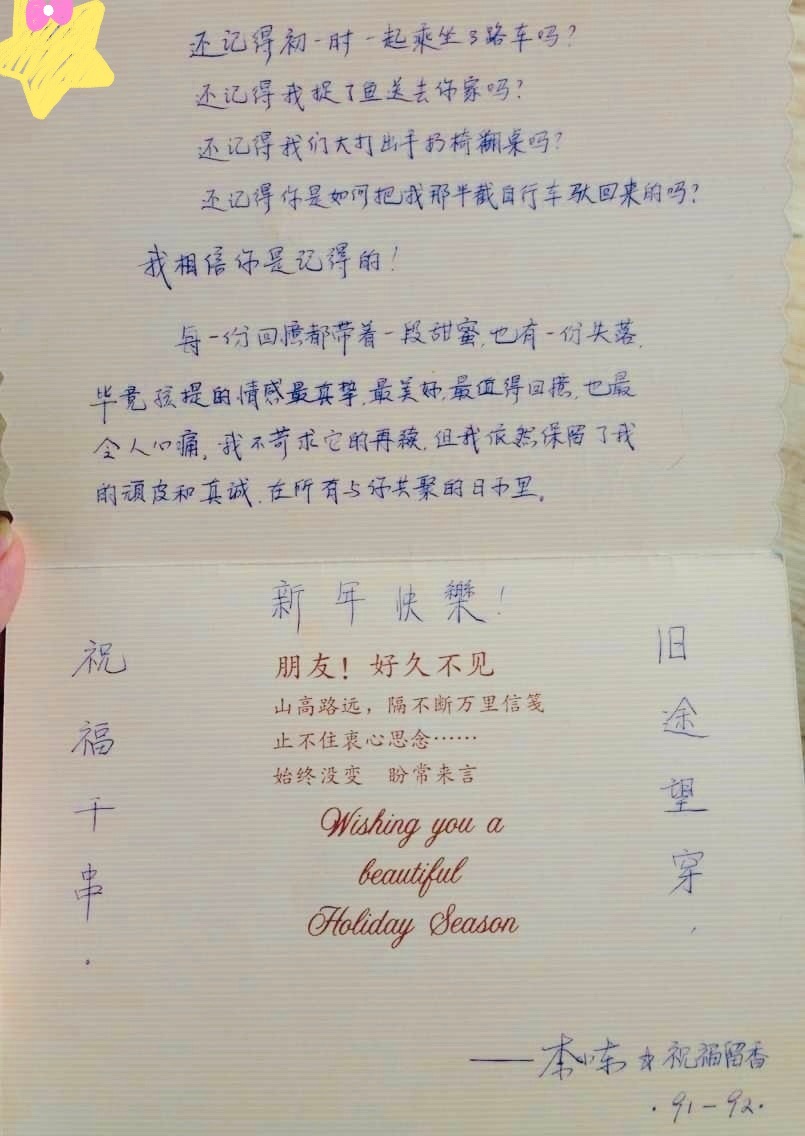 还记得初一时一起乘坐3路车吗？
还记得我捉了鱼送去你家吗？
还记得我们大打出手扔椅翻桌吗？
还记得你是如何把我那半截自行车驮回来的吗？
我相信你是记得的！
每一份回忆都带着一段甜蜜，也有一份失落，
毕竟孩提的情感最真挚，最美好，最值得回忆，也最
令人心痛，我不苛求它的再续，但我依然保留了我
的顽皮和真诚，在所有与你共聚的日子里。
新年快樂！
旧途望穿，
祝福千串。
朋友！好久不见
山高路远，隔不断万里信笺
止不住衷心思念……
始终没变 盼常来言
Wishing you a
beautiful
Holiday Season
——李 祝福留香
·91-92·